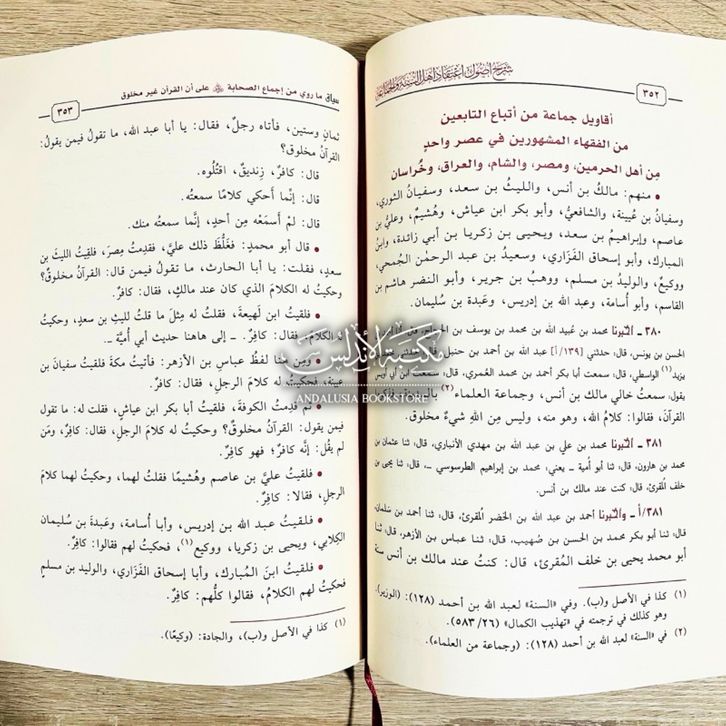 ٣٥٢
شرح أصول اعتقاد أهل السنة والجماعة
أقاويل جماعة من أتباع التابعين
من الفقهاء المشهورين في عصر واحدٍ
مِن أهل الحرمين، ومصر، والشام، والعراق، وخُراسان
• منهم: مالكُ بن أنس، والليثُ بن سعد، وسفيانُ الثوري،
وسفيانُ بن عُيينة، والشافعيُّ، وأبو بكر ابن عياش، وهُشيمٌ، وعليُّ بن
عاصم، وإبراهيمُ بن سعد، ويحيى بن زكريا بن أبي زائدة، وابنُ
المبارك، وأبو إسحاق الفَزَاري، وسعيدُ بن عبد الرحمٰن الجُمحي،
ووكيعٌ، والوليدُ بن مسلم، ووهبُ بن جرير، وأبو النضر هاشم بن
القاسم، وأبو أُسامة، وعبد الله بن إدريس، وعَبدة بن سُليمان.
٣٨٠ ـ أخبرنا محمد بن عُبيد الله بن محمد بن يوسف بن الحجاج، قال: أنا
الحسن بن يونس، قال: حدثني [١٣٩/أ] عبد الله بن أحمد بن حنبل،
يزيد(١) الواسطي، قال: سمعت أبا بكر أحمد بن محمد العُمري، قال: سمعت ابن أبي أويس
يقول: سمعتُ خالي مالك بن أنس، وجماعة العلماء(٢)
القرآنَ، فقالوا: كلامُ الله، وهو منه، وليس مِن اللهِ شيءٌ مخلوق.
٣٨١ ـ أخبرنا محمد بن علي بن عبد الله بن مهدي الأنباري، قال: ثنا عثمان بن
محمد بن هارون، قال: ثنا أبو أمية ـ يعني: محمد بن إبراهيم الطرسوسي ـ، قال: ثنا يحيى بن
خلف المقرئ، قال: كنت عند مالك بن أنس.
٣٨١/أ ـ وأخبرنا أحمد بن عبد الله بن الخضر المُقرئ، قال: ثنا أحمد بن سَلمان،
قال: ثنا أبو بكر محمد بن الحسن بن صُهيب، قال: ثنا عباس بن الأزهر، قال: ثنا
أبو محمد يحيى بن خلف المُقرئ، قال: كنتُ عند مالك بن أنس سنة
(١) كذا في الأصل و(ب). وفي «السنة» لعبد الله بن أحمد (١٢٨): (الوزير).
وهو كذلك في ترجمته في «تهذيب الكمال» (٥٨٣/٢٦).
(٢) في «السنة» لعبد الله بن أحمد (١٢٨): (وجماعة من العلماء).
سياق ما روي من إجماع الصحابة ﷺ على أن القرآن غير مخلوق
٣٥٣
ثمانٍ وستين، فأتاه رجلٌ، فقال: يا أبا عبد الله، ما تقولُ فيمن يقولُ:
القرآنُ مخلوق؟
قال: كافرٌ، زِنديقٌ، اقتُلُوه.
قال: إنَّما أَحكي كلامًا سمعتُه.
قال: لمْ أَسمَعْه مِن أحدٍ، إنَّما سمعتُه منك.
• قال أبو محمدٍ: فغَلُظَ ذلك عليَّ، فقدِمتُ مِصرَ، فلَقيتُ الليث بن
سعدٍ، فقلت: يا أبا الحارث، ما تقولُ فيمن قال: القرآنُ مخلوقٌ؟
وحكيتُ له الكلامَ الذي كان عند مالكٍ، فقال: كافرٌ.
• فلقيتُ ابن لَهيعة، فقلتُ له مِثلَ ما قلتُ لليثِ بن سعدٍ، وحكيتُ
له الكلامَ، فقال: كافِرٌ. ـ إلى هاهنا حديث أبي أُميَّة ـ.
• ومِن هنا لفظُ عباس بن الأزهر: فأتيتُ مكةَ فلَقيتُ سفيانَ بن
عيينة، فحكيتُ له كلامَ الرجلِ، فقال: كافرٌ.
• ثم قدِمتُ الكوفةَ، فلقيتُ أبا بكر ابن عياشٍ، فقلت له: ما تقول
فيمن يقول: القرآنُ مخلوقٌ؟ وحكيتُ له كلامَ الرجلِ، فقال: كافرٌ، ومَن
لم يقُل: إنَّه كافرٌ؛ فهو كافِرٌ.
• فلقيتُ عليَّ بن عاصم وهُشيمًا فقلت لهما، وحكيتُ لهما كلامَ
الرجلِ، فقالا: كافِرٌ.
• فلقيتُ عبدَ الله بن إدريس، وأبا أُسامة، وعَبدةَ بن سُليمان
الكِلابي، ويحيى بن زكريا، ووكيع(١)، فحكيتُ لهم فقالوا: كافِرٌ.
• فلقيتُ ابنَ المُبارك، وأبا إسحاق الفَزَاري، والوليد بن مسلمٍ
فحكيتُ لهم الكلامَ، فقالوا كلُّهم: كافِرٌ.
(١) كذا في الأصل و(ب)، والجادة: (وكيعًا).
مكتبة الأندلس
ANDALUSIA BOOKSTORE